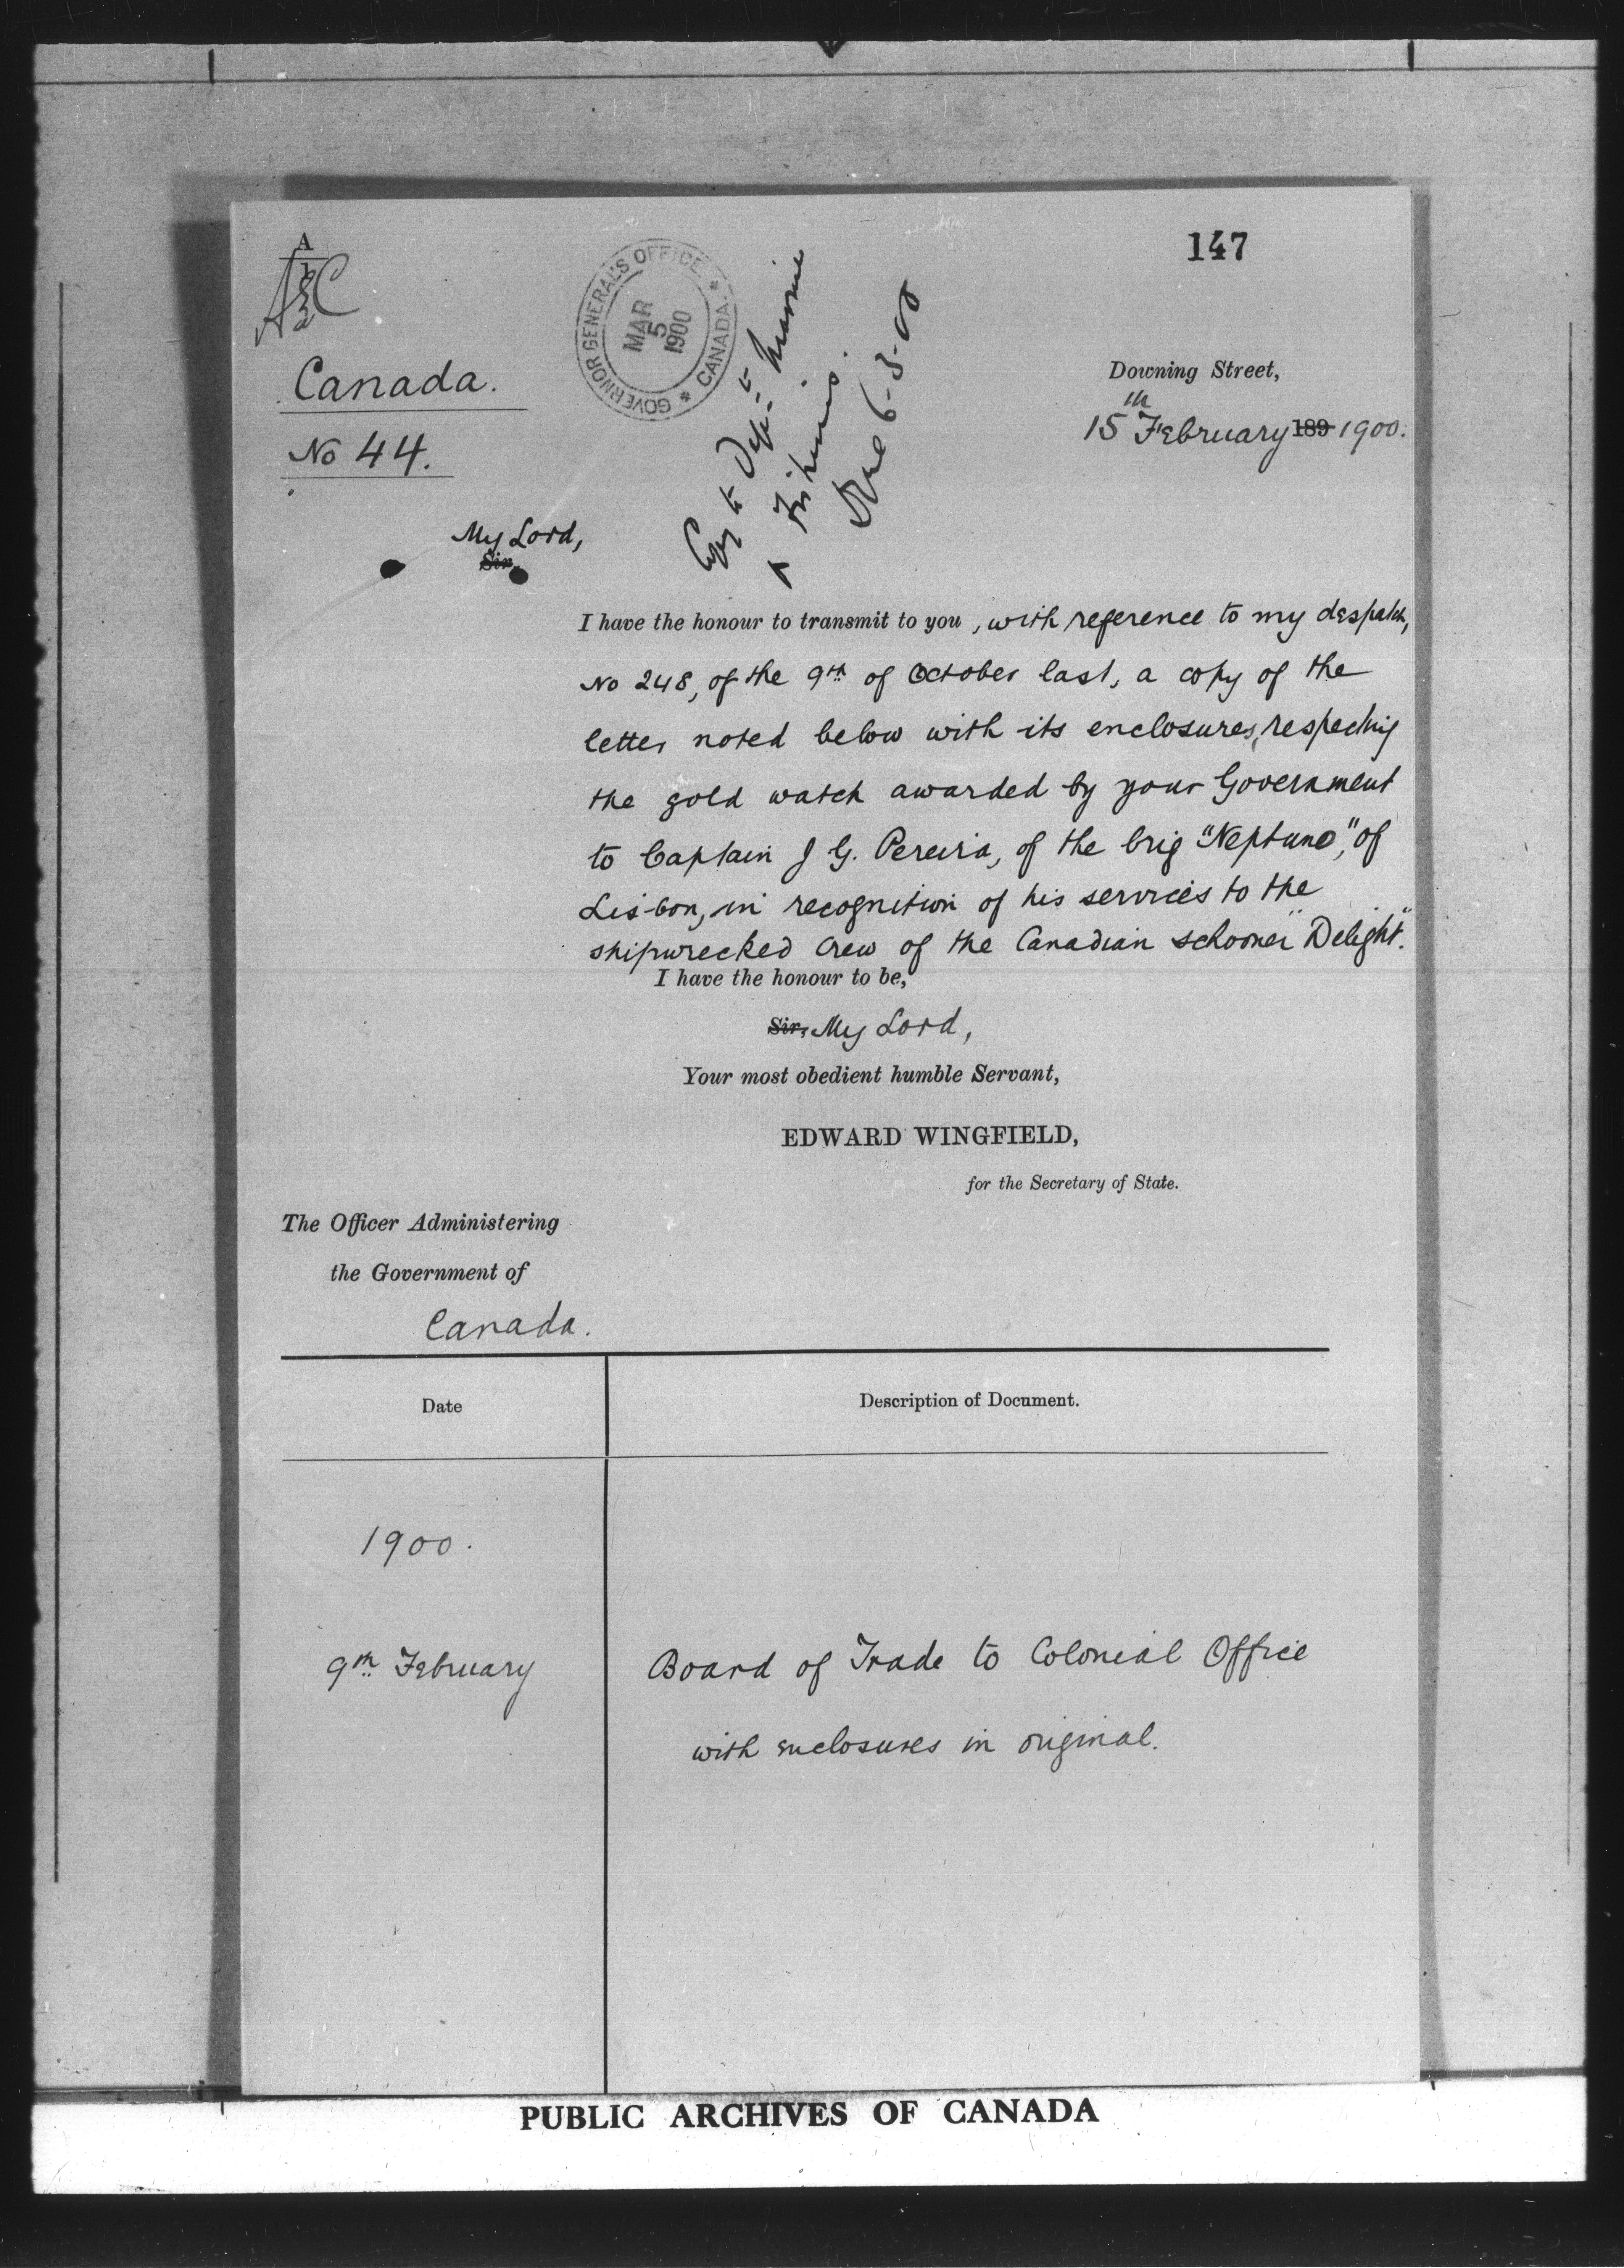 147
A
Canada.
No 44.
GOVERNOR GENERAL'S OFFICE
MAR
5
1900
* CANADA. *
Copy to Dept of Marine
& Fisheries.
6-3-00
Downing Street,
15th February 189 1900.
My Lord,
Sir,
I have the honour to transmit to you, with reference to my despatch,
No 248, of the 9th of October last, a copy of the
letter noted below with its enclosures, respecting
the gold watch awarded by your Government
to Captain J G. Pereira, of the brig "Neptuno," of
Lisbon, in recognition of his services to the
shipwrecked crew of the Canadian schooner "Delight".
I have the honour to be,
Sir, My Lord,
Your most obedient humble Servant,
EDWARD WINGFIELD,
for the Secretary of State.
The Officer Administering
the Government of
Canada.
Date
Description of Document.
1900.
9th February
Board of Trade to Colonial Office
with enclosures in original.
PUBLIC ARCHIVES OF CANADA